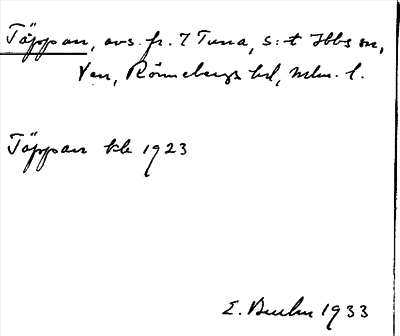 Täppan, avs. fr. 7 Tuna, S:t Ibbs sn,
Ven, Rönnebergs hd, Mlm. l.
Täppan kb 1923
E. 1933